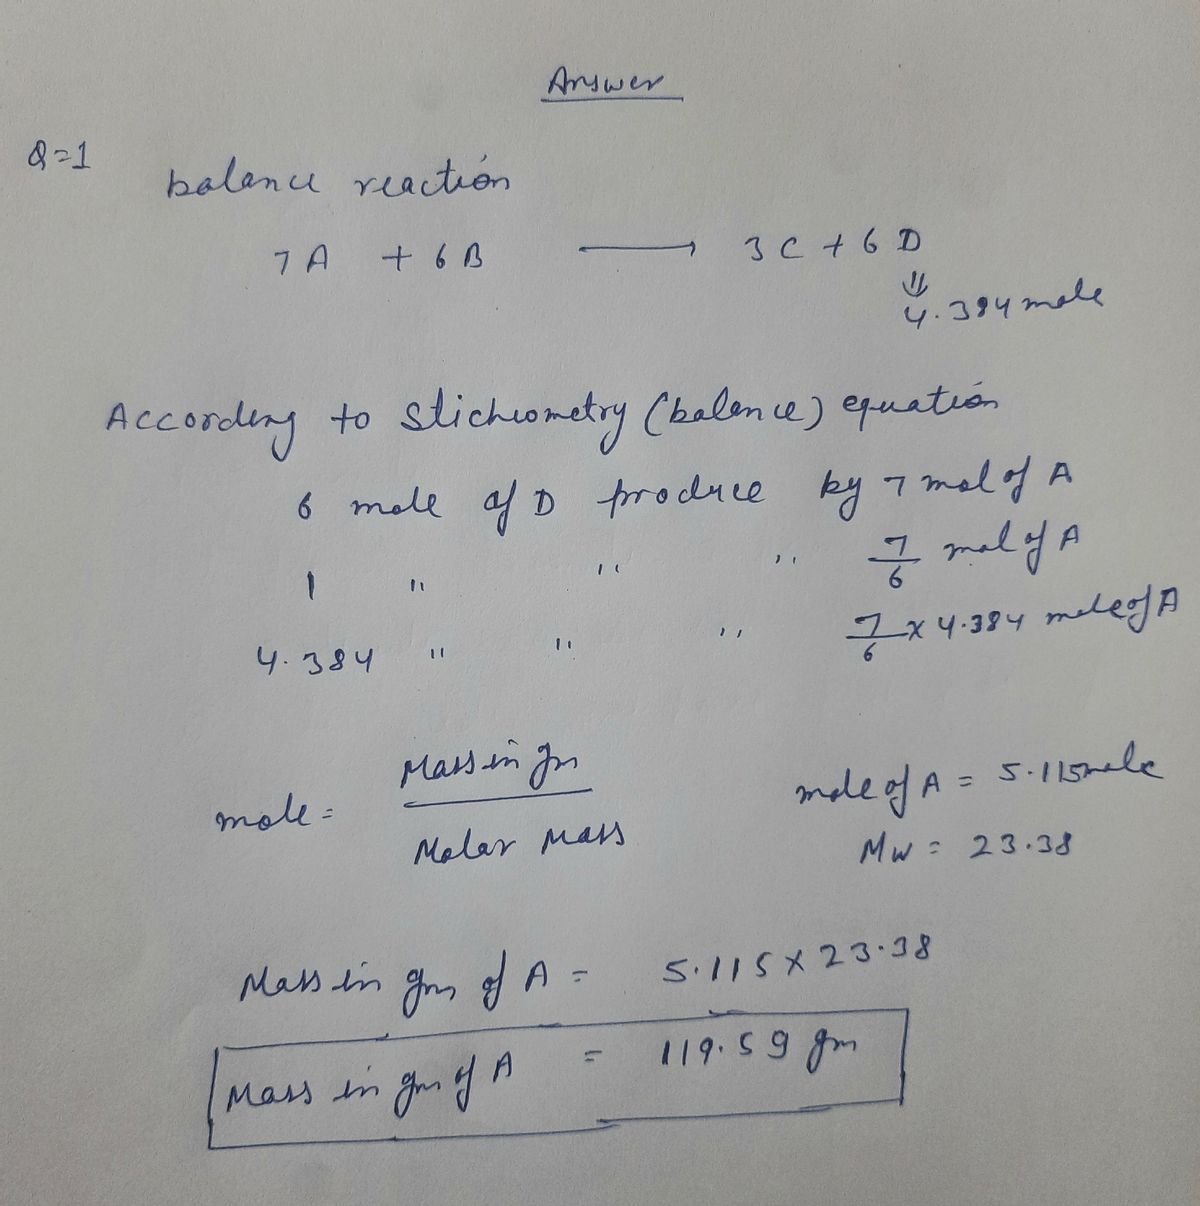 Answer
Q=1
balance reaction
7A + 6B → 3C + 6D
⇓
4.384 mole
According to Stichiometry (balance) equation
6 mole of D produce by 7 mol of A
1 " " " 7/6 mol of A
4.384 " " " 7/6 x 4.384 mole of A
mole = Mass in gm / Molar Mass
mole of A = 5.115 mole
Mw = 23.38
Mass in gm of A = 5.115 x 23.38
Mass in gm of A = 119.59 gm